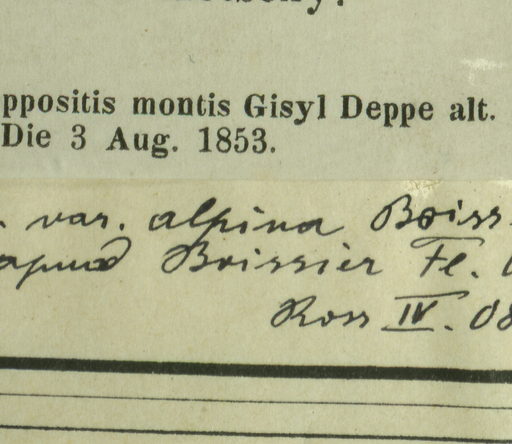 ppositis montis Gisyl Deppe alt.
Die 3 Aug. 1853.
. var. alpina Boiss.
apud Boissier Fl.
Ross IV. 08